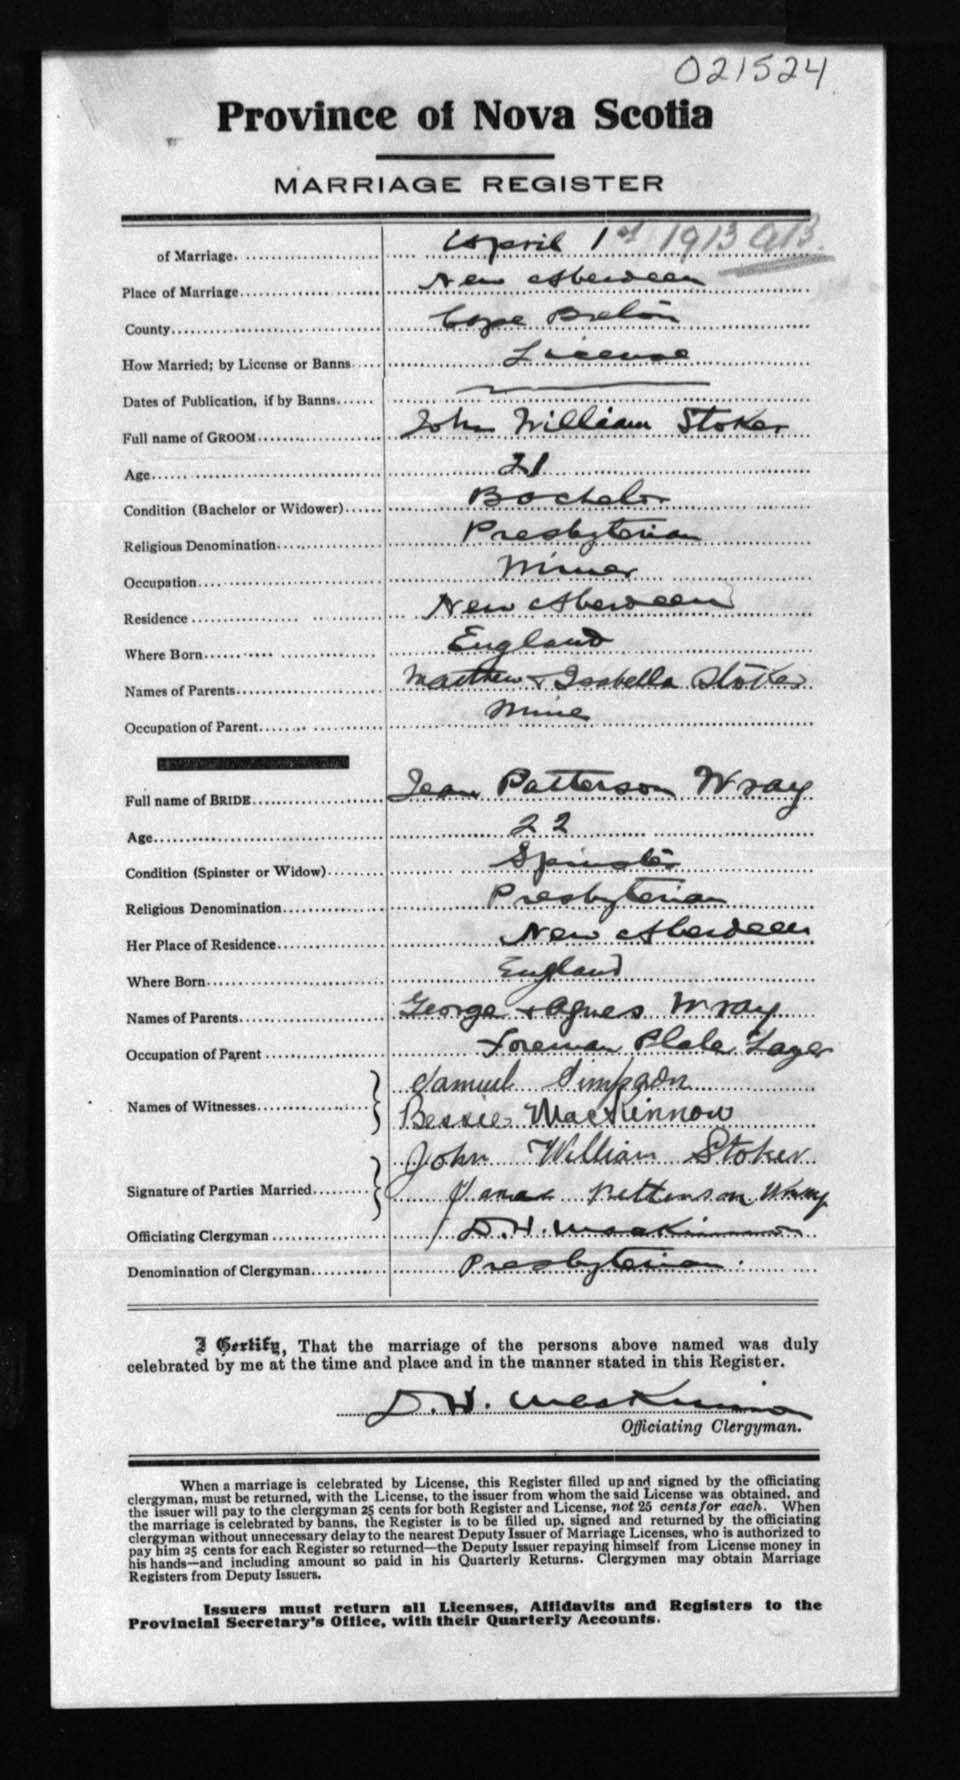 021524
Province of Nova Scotia
MARRIAGE REGISTER
of Marriage. April 1st 1913
Place of Marriage New Aberdeen
County Cape Breton
How Married; by License or Banns License
Dates of Publication, if by Banns
Full name of GROOM John William Stoker
Age 21
Condition (Bachelor or Widower) Bachelor
Religious Denomination Presbyterian
Occupation Miner
Residence New Aberdeen
Where Born England
Names of Parents Matthew & Isabella Stoker
Occupation of Parent Mine
Full name of BRIDE Jean Patterson Wray
Age 22
Condition (Spinster or Widow) Spinster
Religious Denomination Presbyterian
Her Place of Residence New Aberdeen
Where Born England
Names of Parents George & Agnes Wray
Occupation of Parent Foreman Plate Layer
Samuel Simpson
Names of Witnesses Bessie MacKinnon
John William Stoker
Signature of Parties Married Wray
Officiating Clergyman D. H. MacKinnon
Denomination of Clergyman Presbyterian.
I Certify, That the marriage of the persons above named was duly
celebrated by me at the time and place and in the manner stated in this Register.
D. H. MacKinnon
Officiating Clergyman.
When a marriage is celebrated by License, this Register filled up and signed by the officiating
clergyman, must be returned, with the License, to the issuer from whom the said License was obtained, and
the issuer will pay to the clergyman 25 cents for both Register and License, not 25 cents for each. When
the marriage is celebrated by banns, the Register is to be filled up, signed and returned by the officiating
clergyman without unnecessary delay to the nearest Deputy Issuer of Marriage Licenses, who is authorized to
pay him 25 cents for each Register so returned—the Deputy Issuer repaying himself from License money in
his hands—and including amount so paid in his Quarterly Returns. Clergymen may obtain Marriage
Registers from Deputy Issuers.
Issuers must return all Licenses, Affidavits and Registers to the
Provincial Secretary's Office, with their Quarterly Accounts.